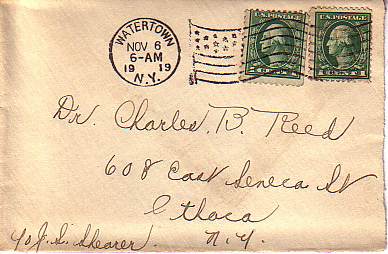 WATERTOWN
NOV 6
6-AM
19 19
N.Y.
U.S. POSTAGE
U.S. POSTAGE
Dr. Charles B. Reed
608 East Seneca St
Ithaca
N.Y.
c/o J. S. Shearer.